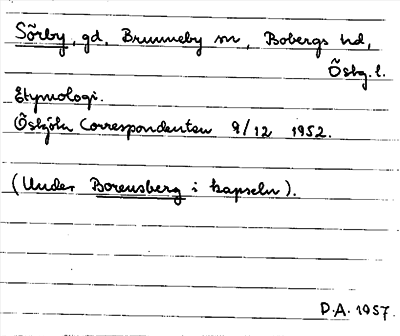 Sörby, gd, Brunneby sn, Bobergs hd,
Östg. l.
Etymologi.
Östgöta Correspondenten 9/12 1952.
(Under Borensberg i kapseln).
D.A. 1957.